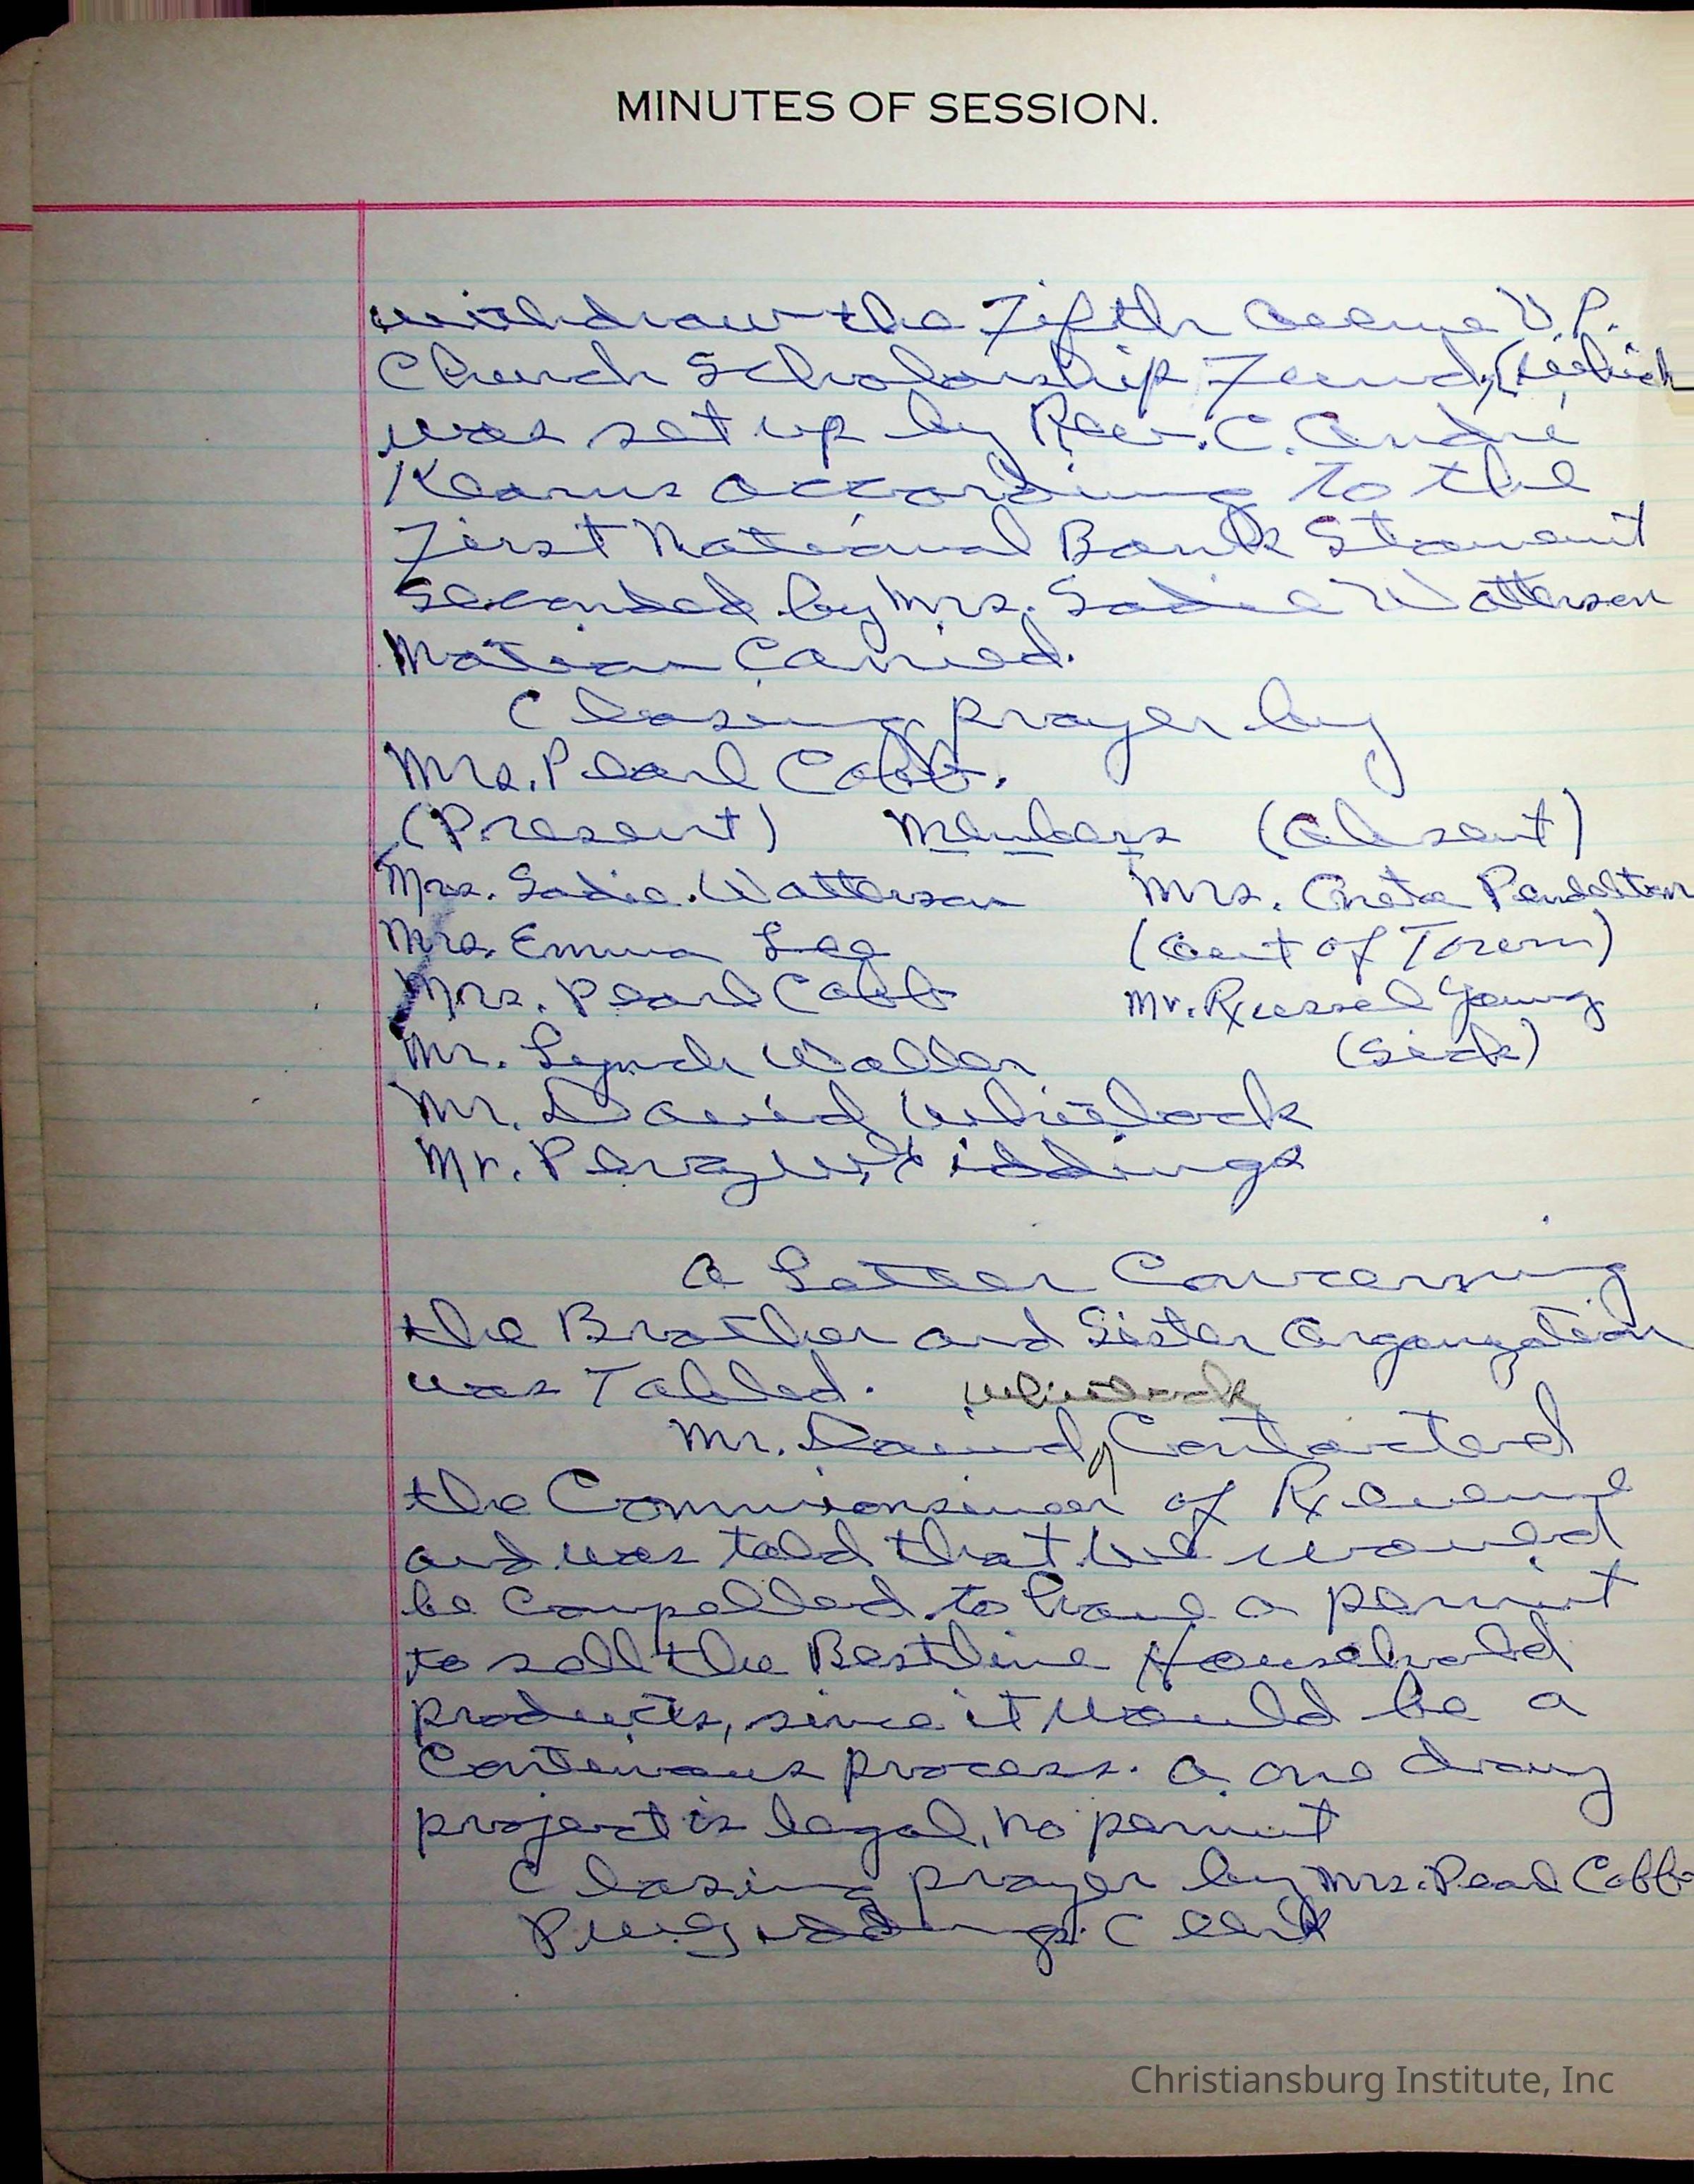 MINUTES OF SESSION.
withdraw the Fifth Avenue U.P.
Church Scholarship Fund, (which
was set up by Rev. C. Andre
Kearns according to the
First National Bank Stament
Seconded by Mrs. Sadie Watterson
Motion Carried.
Closing prayer by
Mrs. Pearl Cobb.
(Present) Members (Absent)
Mrs. Sadie Watterson Mrs. Pendelton
Mrs. Emma Lee (Out of Town)
Mrs. Pearl Cobb Mr. Russel Young
Mr. Lynch Waller (Sick)
Mr. David Whitlock
Mr. Percy W. Giddings
A Letter Concerning
the Brother and Sister Organization
was Tabled. Whitlock
Mr. David Contacted
the of Revenue
and was told that we would
be Compelled to have a permit
to sell the Bestline Household
products, since it would be a
Contenous process. a one day
project is legal, no permit
Closing prayer by Mrs. Pearl Cobb
P.W. Giddings. Clerk
Christiansburg Institute, Inc